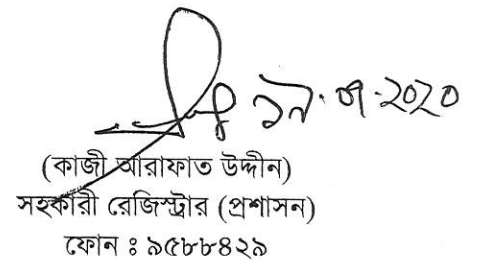 (কাজী আরাফাত উদ্দীন)
সহকারী রেজিস্ট্রার (প্রশাসন)
ফোন ঃ ৯৫৮৮৪২৯